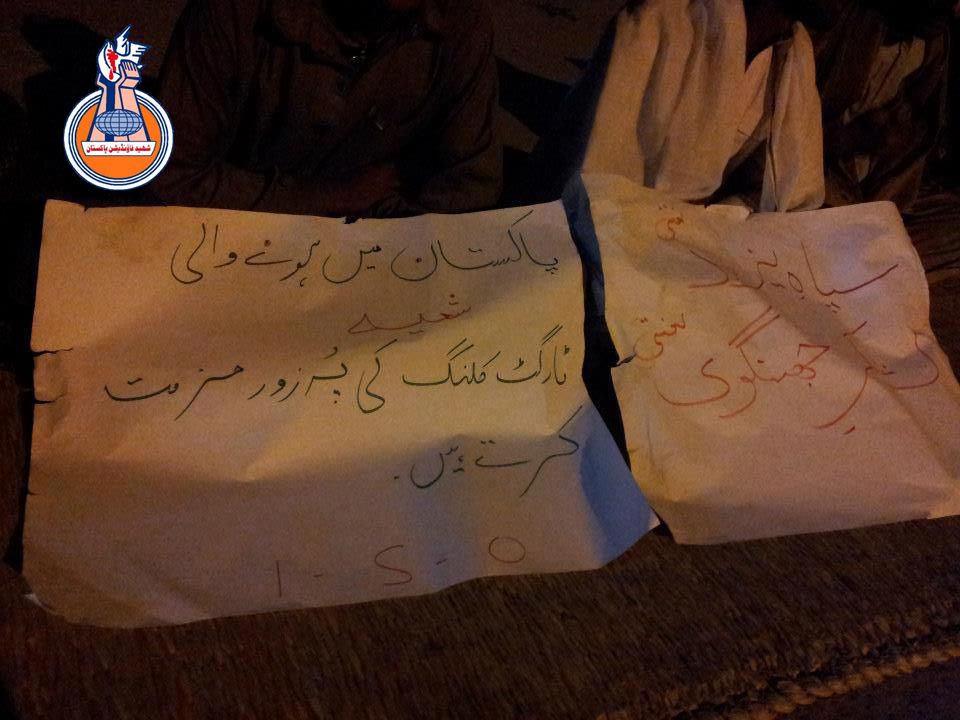 شھید فاؤنڈیشن پاکستان
پاکستان میں ہونے والی
شعیہ
ٹارگٹ کلنگ کی پُرزور مزمت
کرتے ہیں.
I - S - O
سپاہ یزید
لشکر جھنگوی لعنتی